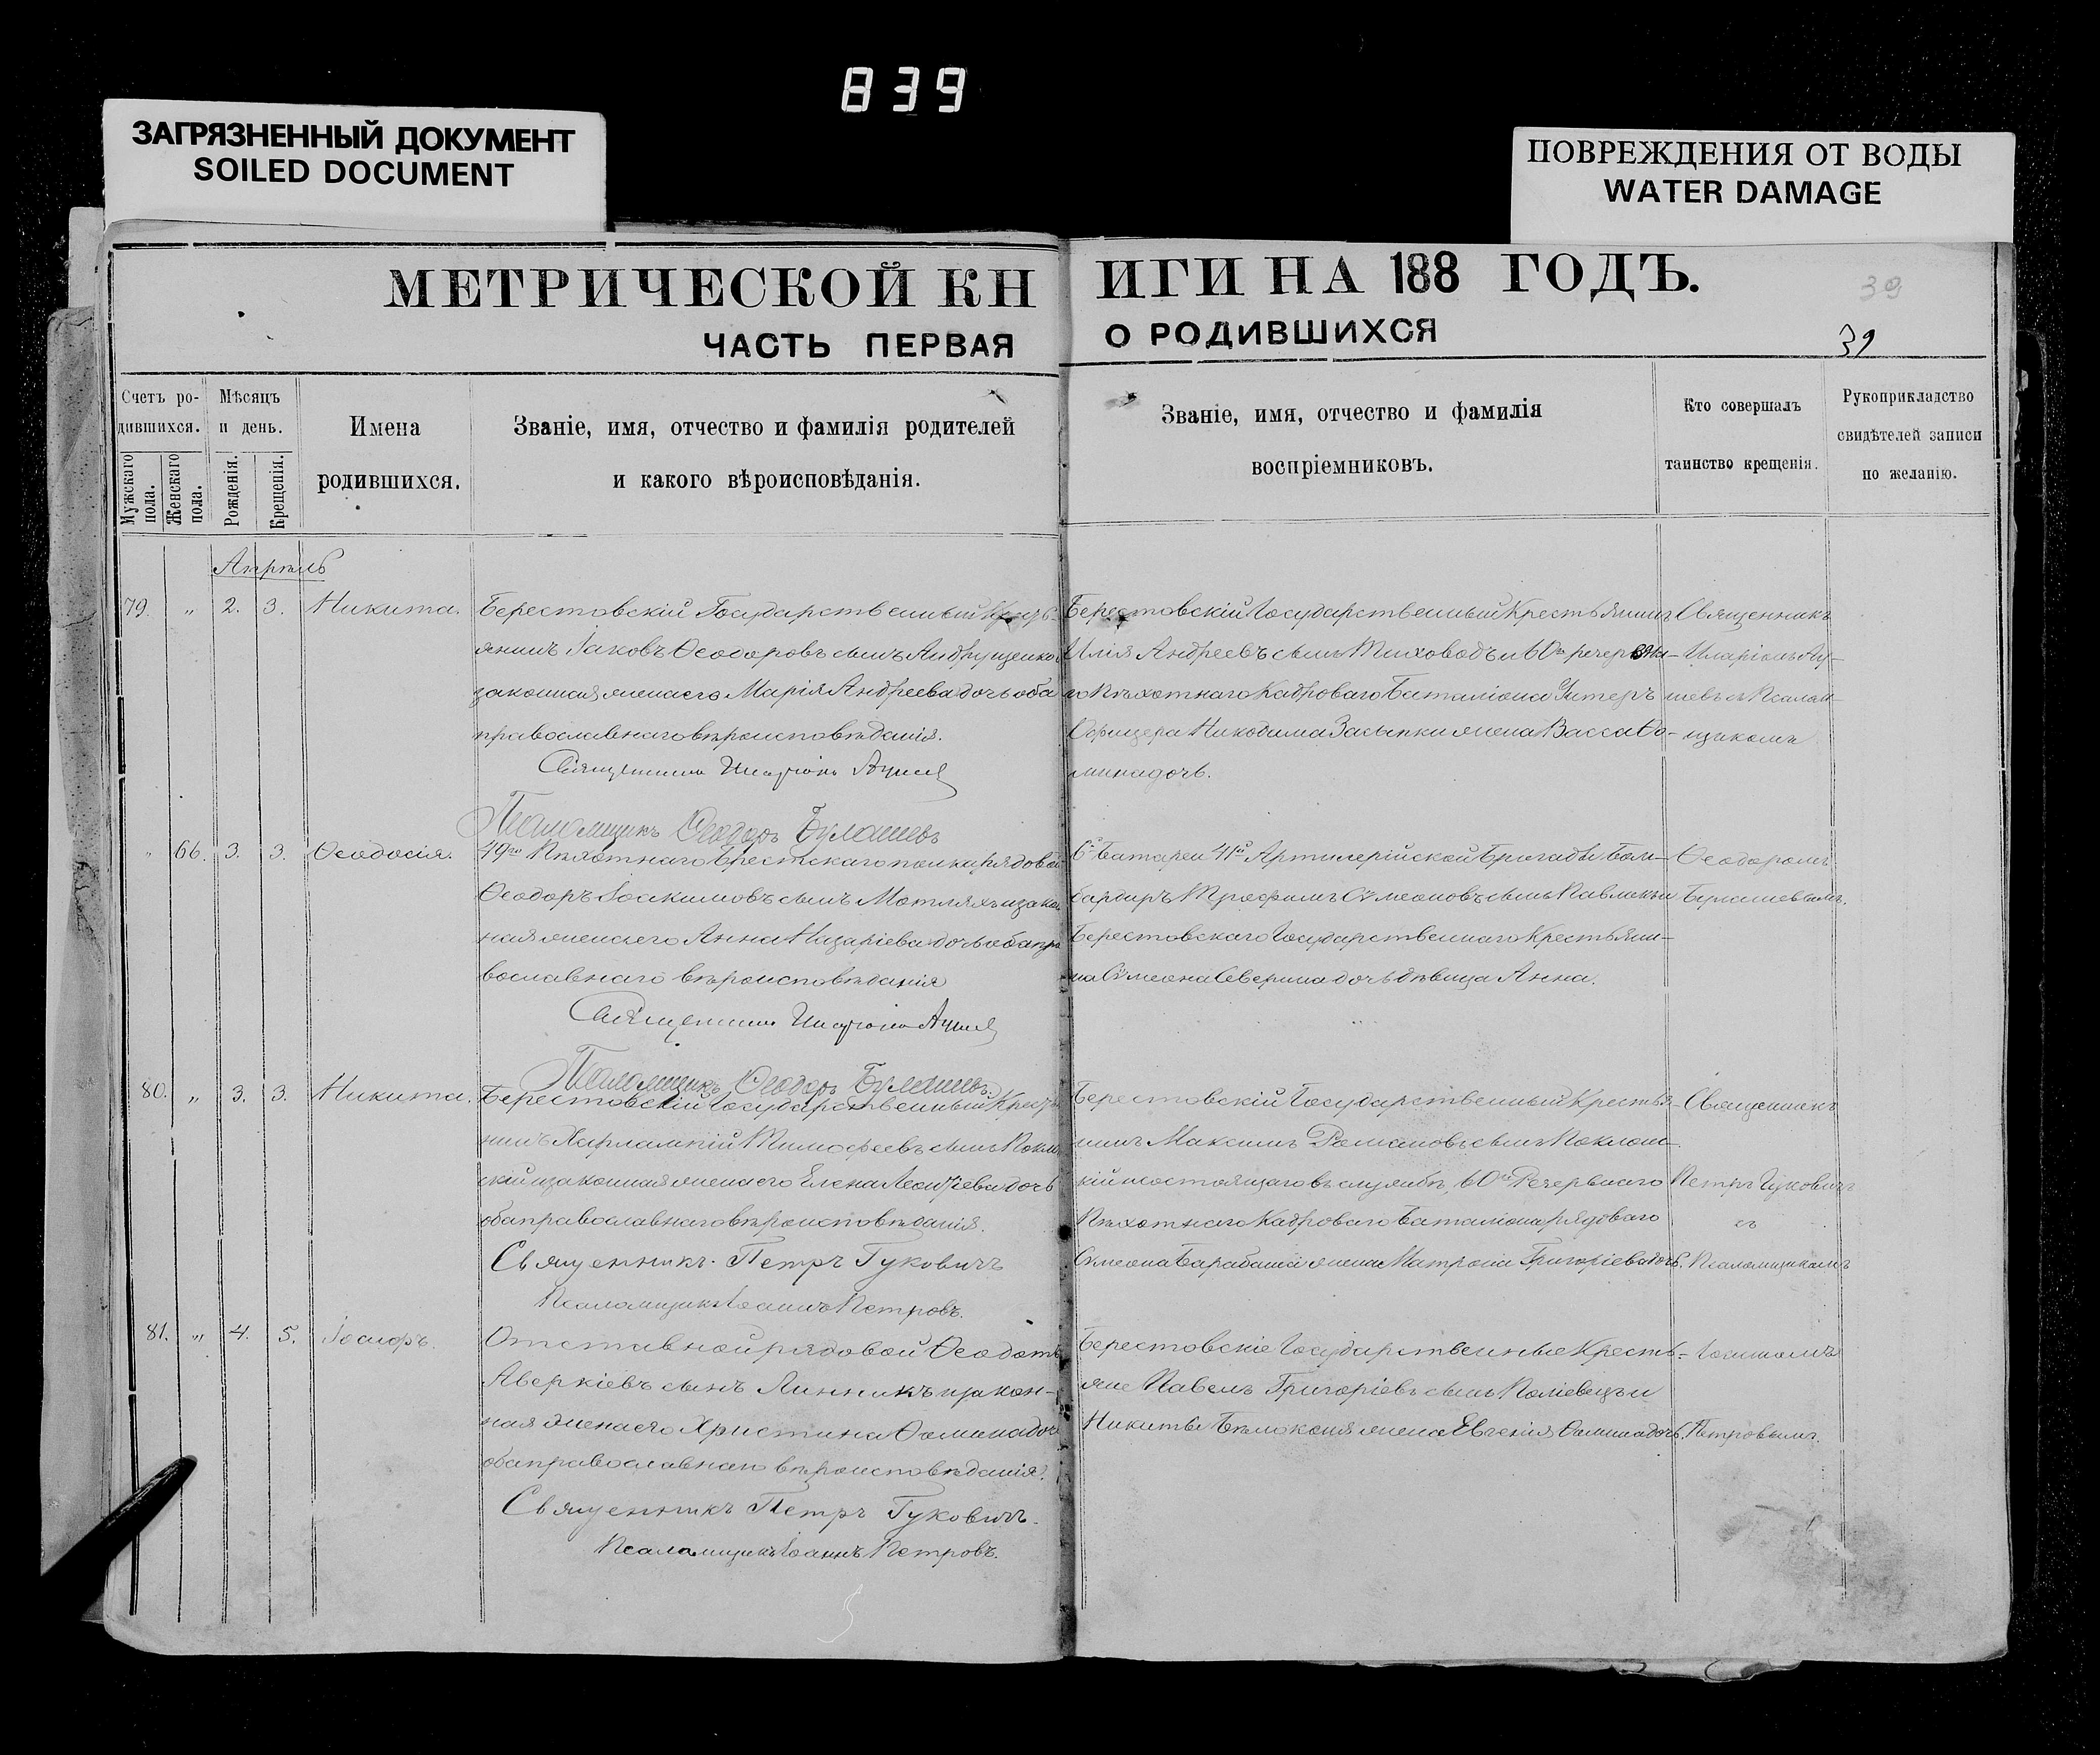 839
ЗАГРЯЗНЕННЫЙ ДОКУМЕНТ
SOILED DOCUMENT
ПОВРЕЖДЕНИЯ ОТ ВОДЫ
WATER DAMAGE
МЕТРИЧЕСКОЙ КН
ИГИ НА 188 ГОДЪ.
39
ЧАСТЬ ПЕРВАЯ
О РОДИВШИХСЯ
39
Счетъ ро-
дившихся.
Мужскаго пола.
Женскаго пола.
Мѣсяцъ
и день.
Рожденія.
Крещенія.
Имена
родившихся.
Званіе, имя, отчество и фамилія родителей
и какого вѣроисповѣданія.
Званіе, имя, отчество и фамилія
воспріемниковъ.
Кто совершалъ
таинство крещенія.
Рукоприкладство
свидѣтелей записи
по желанію.
Апрѣль
79. „ 2. 3. Никита.
Берестовскій Государственный Кресть-
янинъ Іаковъ Ѳеодоровъ сынъ Андрущенко и
законная жена его Марія Андреева дочь оба
православнаго вѣроисповѣданія.
Священникъ Иларіонъ
Псаломщикъ Ѳеодоръ Булашевъ
Берестовскій Государственный Крестьянинъ
Илія Андреевъ сынъ Тиховодъ и 60го резервна-
го Пѣхотнаго Кадроваго Баталіона Унтеръ
Офицера Никодима Засыпки жена Васса Ѳо-
мина дочь.
Священникъ
Иларіонъ
съ Псалом-
щикомъ
„ 66. 3. 3. Ѳеодосія.
49го Пѣхотнаго Брестскаго полка рядовой
Ѳеодоръ Іоакимовъ сынъ Мотляхъ и закон
ная жена его Анна Назаріева дочь оба пра
вославнаго вѣроисповѣданія
Священникъ Иларіонъ
Псаломщикъ Ѳеодоръ Булашевъ.
6й Батареи 41й Артилерійской Бригады Бом-
бардиръ Трофимъ Сѵмеоновъ сынъ Павлюкъ и
Берестовскаго Государственнаго Крестьяни-
на Сѵмеона Северина дочь дѣвица Анна.
Ѳеодоромъ
Булашевымъ.
80. „ 3. 3. Никита.
Берестовскій Государственный Кресть
нинъ Харлампій Тимофеевъ сынъ Покло
скій и законная жена его Елена Леонтіева дочь
оба православнаго вѣроисповѣданія.
Священникъ Петръ Гуковичъ
Псаломщикъ Іоаннъ Петровъ.
Берестовскій Государственный Крестья-
нинъ Максимъ Романовъ сынъ Поклон-
кій и состоящаго въ службѣ, 60го Резервнаго
Пѣхотнаго Кадроваго Баталіона рядоваго
Сѵмеона Барабаша жена Матрона Григоріева дочь.
Священникъ
Петръ Гуковичъ
съ
Псаломщикомъ
81. „ 4. 5. Іосифъ.
Отставной рядовой Ѳеодотъ
Аверкіевъ сынъ Линникъ и закон-
ная жена его Христина Ѳомина дочь
оба православнаго вѣроисповѣданія.
Священникъ Петръ Гуковичъ.
Псаломщикъ Іоаннъ Петровъ.
Берестовскіе Государственные Кресть-
яне Павелъ Григоріевъ сынъ и
Никиты Бѣлоконя жена Евгенія Ѳомина дочь.
Іоанномъ
Петровымъ.